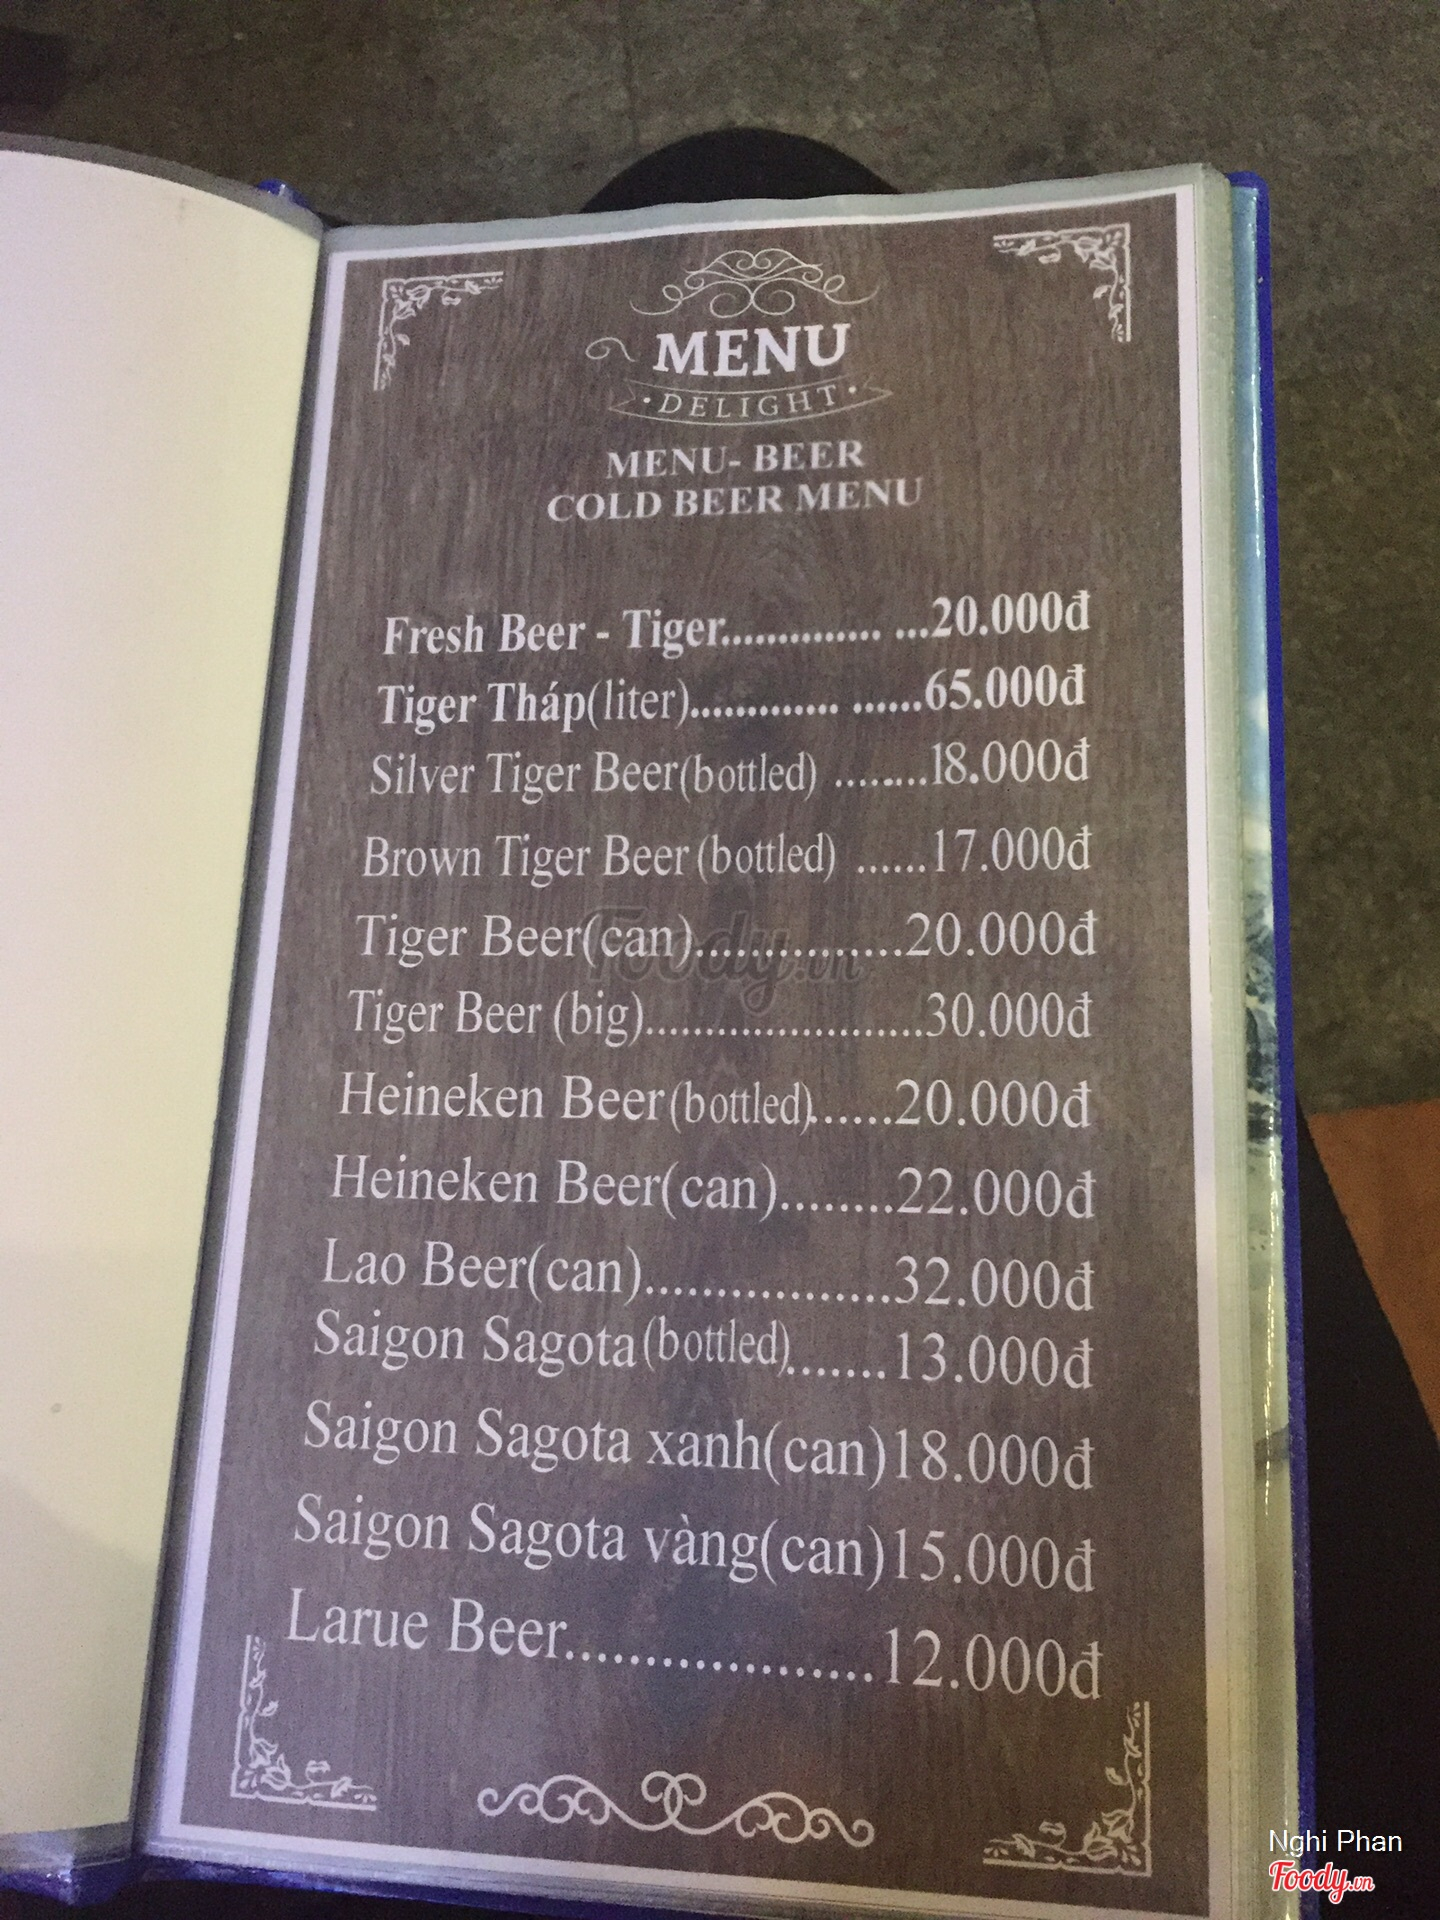 MENU
DELIGHT
MENU- BEER
COLD BEER MENU
Fresh Beer - Tiger.............. ...20.000đ
Tiger Tháp(liter)............. ......65.000đ
Silver Tiger Beer(bottled) ........18.000đ
Brown Tiger Beer (bottled) ......17.000đ
Tiger Beer(can).................20.000đ
Tiger Beer (big).......................30.000đ
Heineken Beer(bottled).......20.000đ
Heineken Beer(can)........22.000đ
Lao Beer(can).................32.000đ
Saigon Sagota(bottled).......13.000đ
Saigon Sagota xanh(can)18.000đ
Saigon Sagota vàng(can)15.000đ
Larue Beer...................12.000đ
Foody.vn
Nghi Phan
Foody.vn